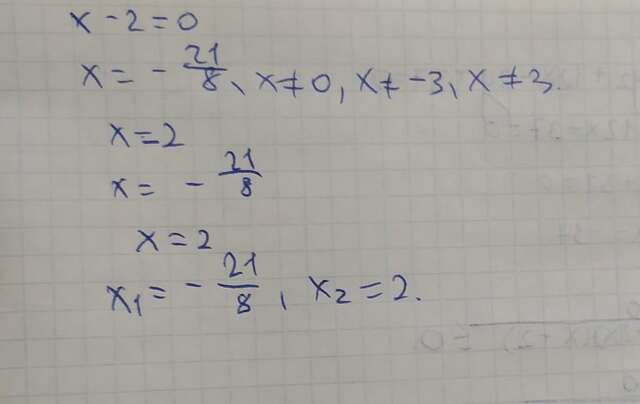 x - 2 = 0
x = - 21/8, x ≠ 0, x ≠ -3, x ≠ 3.
x = 2
x = - 21/8
x = 2
x₁ = - 21/8, x₂ = 2.